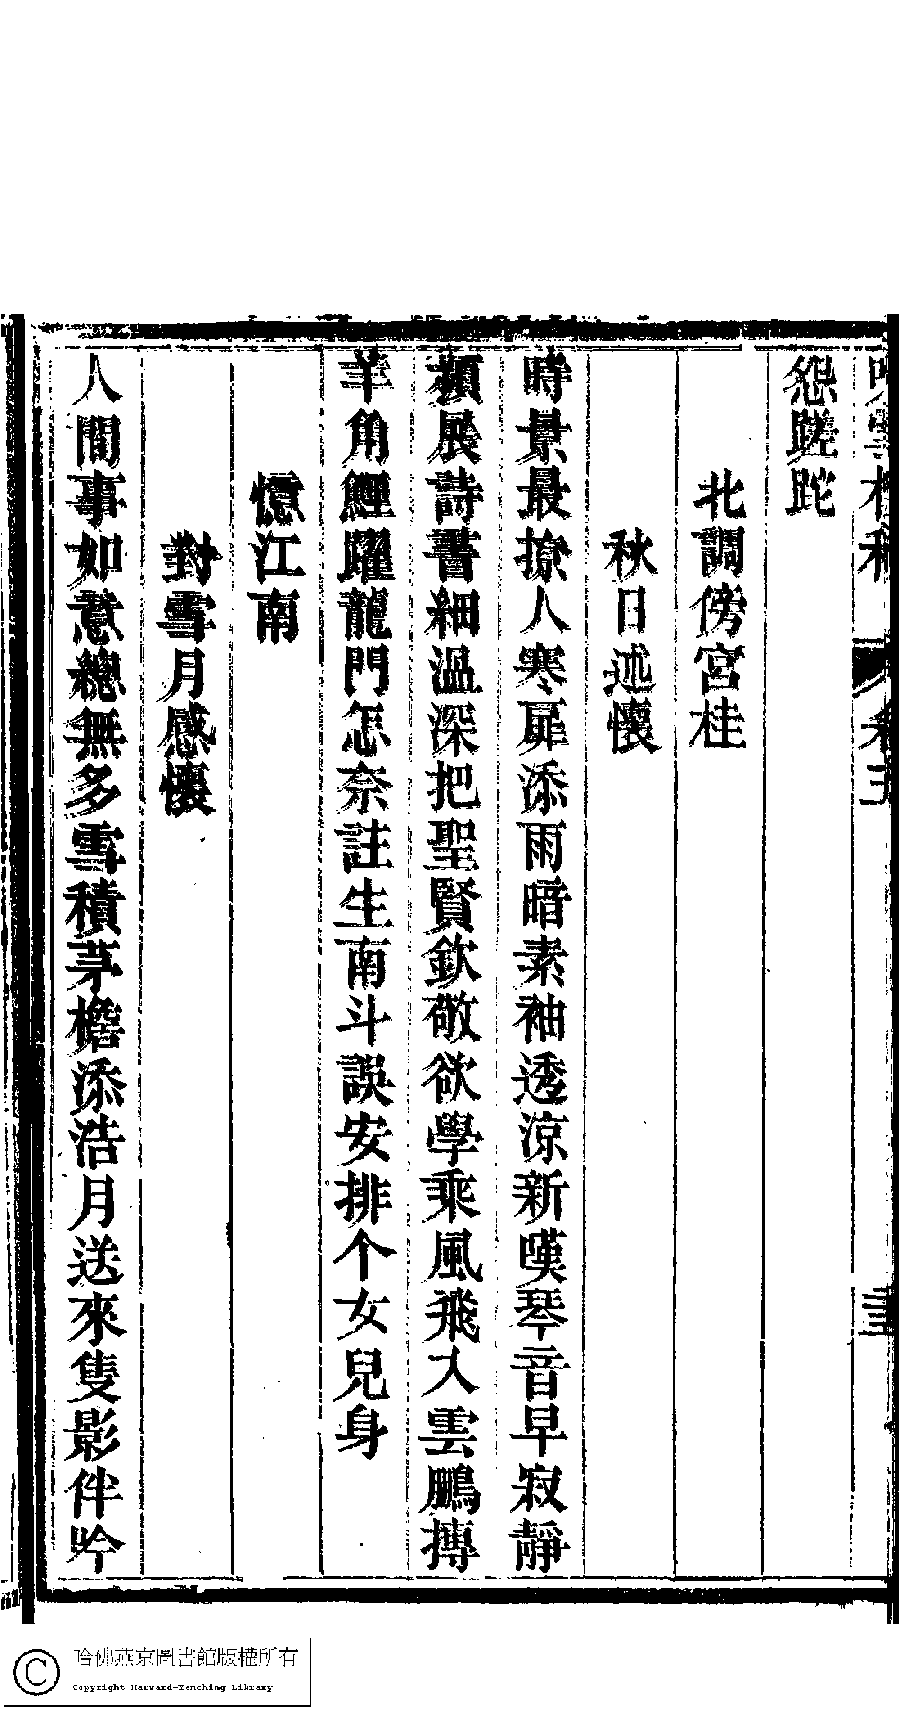 怨蹉跎
北調傍宮桂
秋日述懷
時景最撩人寒扉添雨暗素袖透涼新嘆琴音早寂靜
頻展詩書細溫深把聖賢欽敬欲學乘風飛入雲鵬摶
羊角鯉躍龍門怎奈註生南斗誤安排个女兒身
憶江南
對雪月感懷
人間事如意總無多雪積茅檐添浩月送來隻影伴吟
哈佛燕京圖書館版權所有
Copyright Harvard-Yenching Library